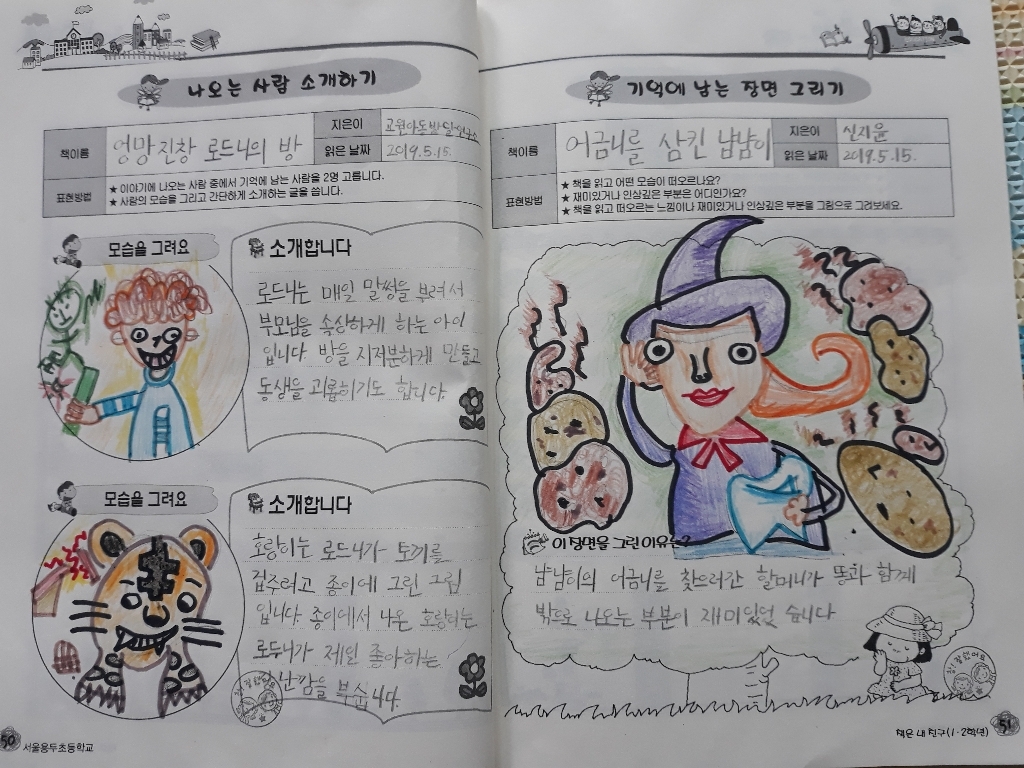 나오는 사람 소개하기
책이름
엉망진창 로드니의 방
지은이
읽은 날짜
2019.5.15.
표현방법
★ 이야기에 나오는 사람 중에서 기억에 남는 사람을 2명 고릅니다.
★ 사람의 모습을 그리고 간단하게 소개하는 글을 씁니다.
모습을 그려요
소개합니다
로드니는 매일 말썽을 부려서
부모님을 속상하게 하는 아이
입니다. 방을 지저분하게 만들고
동생을 괴롭히기도 합니다.
모습을 그려요
소개합니다
호랑이는 로드니가 토끼를
겁주려고 종이에 그린 그림
입니다. 종이에서 나온 호랑이는
로드니가 제일 좋아하는
장난감을 부숩니다.
참! 잘했어요
50 서울용두초등학교
기억에 남는 장면 그리기
책이름
어금니를 삼킨 냠냠이
지은이
신지윤
읽은 날짜
2019.5.15.
표현방법
★ 책을 읽고 어떤 모습이 떠오르나요?
★ 재미있거나 인상깊은 부분은 어디인가요?
★ 책을 읽고 떠오르는 느낌이나 재미있거나 인상깊은 부분을 그림으로 그려보세요.
이 장면을 그린 이유는?
냠냠이의 어금니를 찾으러간 할머니가 똥과 함께
밖으로 나오는 부분이 재미있었습니다
참! 잘했어요
책은 내 친구(1·2학년) 51